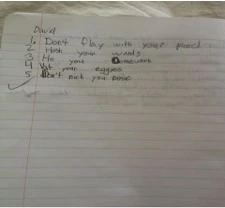 David
1. Don't Play with your food
2 Wash your hands
3 Do your homework
4 Eat your eggies
5 Don't pick your nose